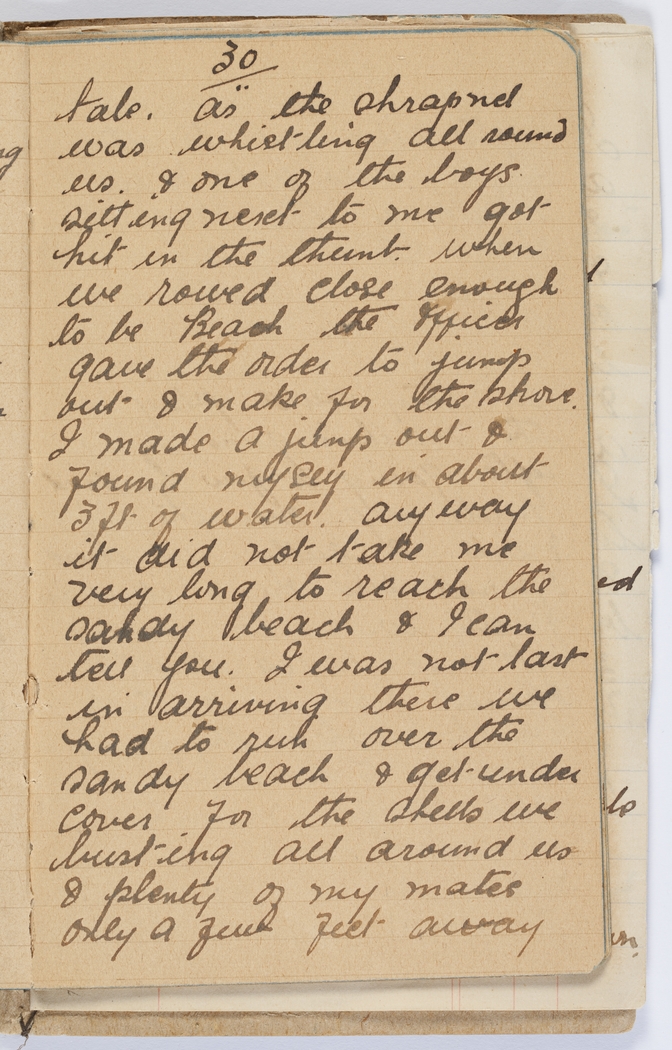 30
tale. as the shrapnel
was whistling all round
us. & one of the boys.
sitting next to me got
hit in the thumb. when
we rowed close enough
to be Beach the officer
gave the order to jump
out & make for the shore.
I made a jump out &
found myself in about
3 ft of water. anyway
it did not take me
very long to reach the
sandy beach & I can
tell you. I was not last
in arriving there we
had to run over the
sandy beach & get under
cover for the shells we
bursting all around us
& plenty of my mates
only a few feet away